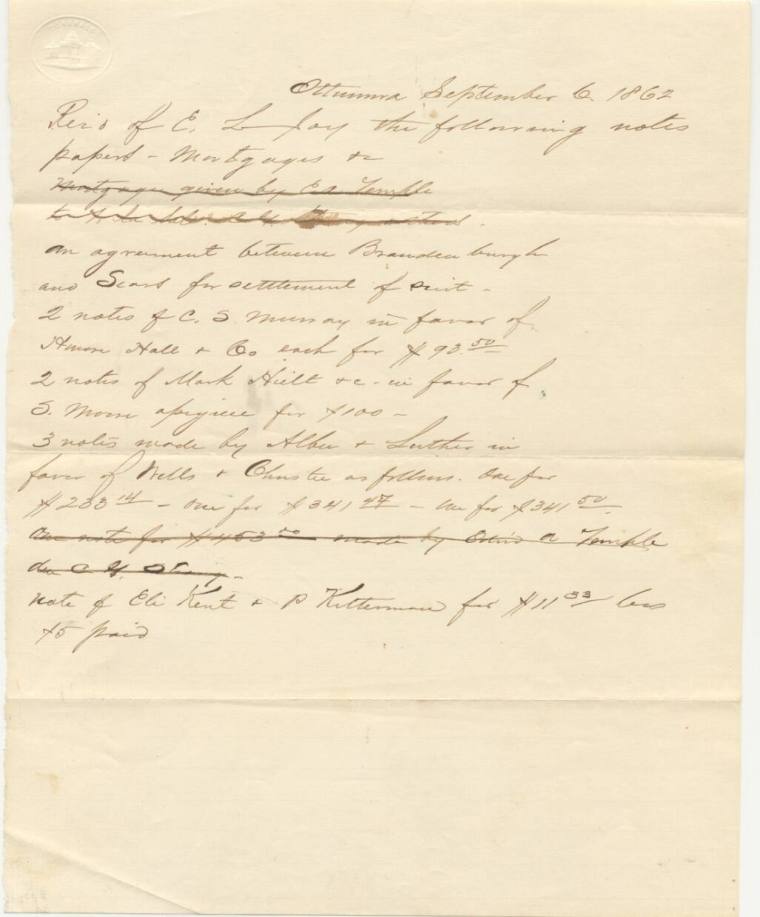 Ottumwa September 6. 1862
Rec'd of E. L Joy the following notes
papers - Mortgages &c
Mortgage given by E A Temple
to
an agreement between Brandenburgh
and Sears for settlement of suit -
2 notes of C. S. Murray in favor of
Hall & Co each for $93 50
2 notes of Mark Hiett &c - in favor of
S. Moore apiece for $100 -
3 notes made by Albee & Luther in
favor of Wells & Christie as follows. One for
$233 14 - One for $341 47 - One for $341 50
One note for $453 00 made by A Temple
note of Eli Kent & P Kitterman for $11 33 less
$5 paid